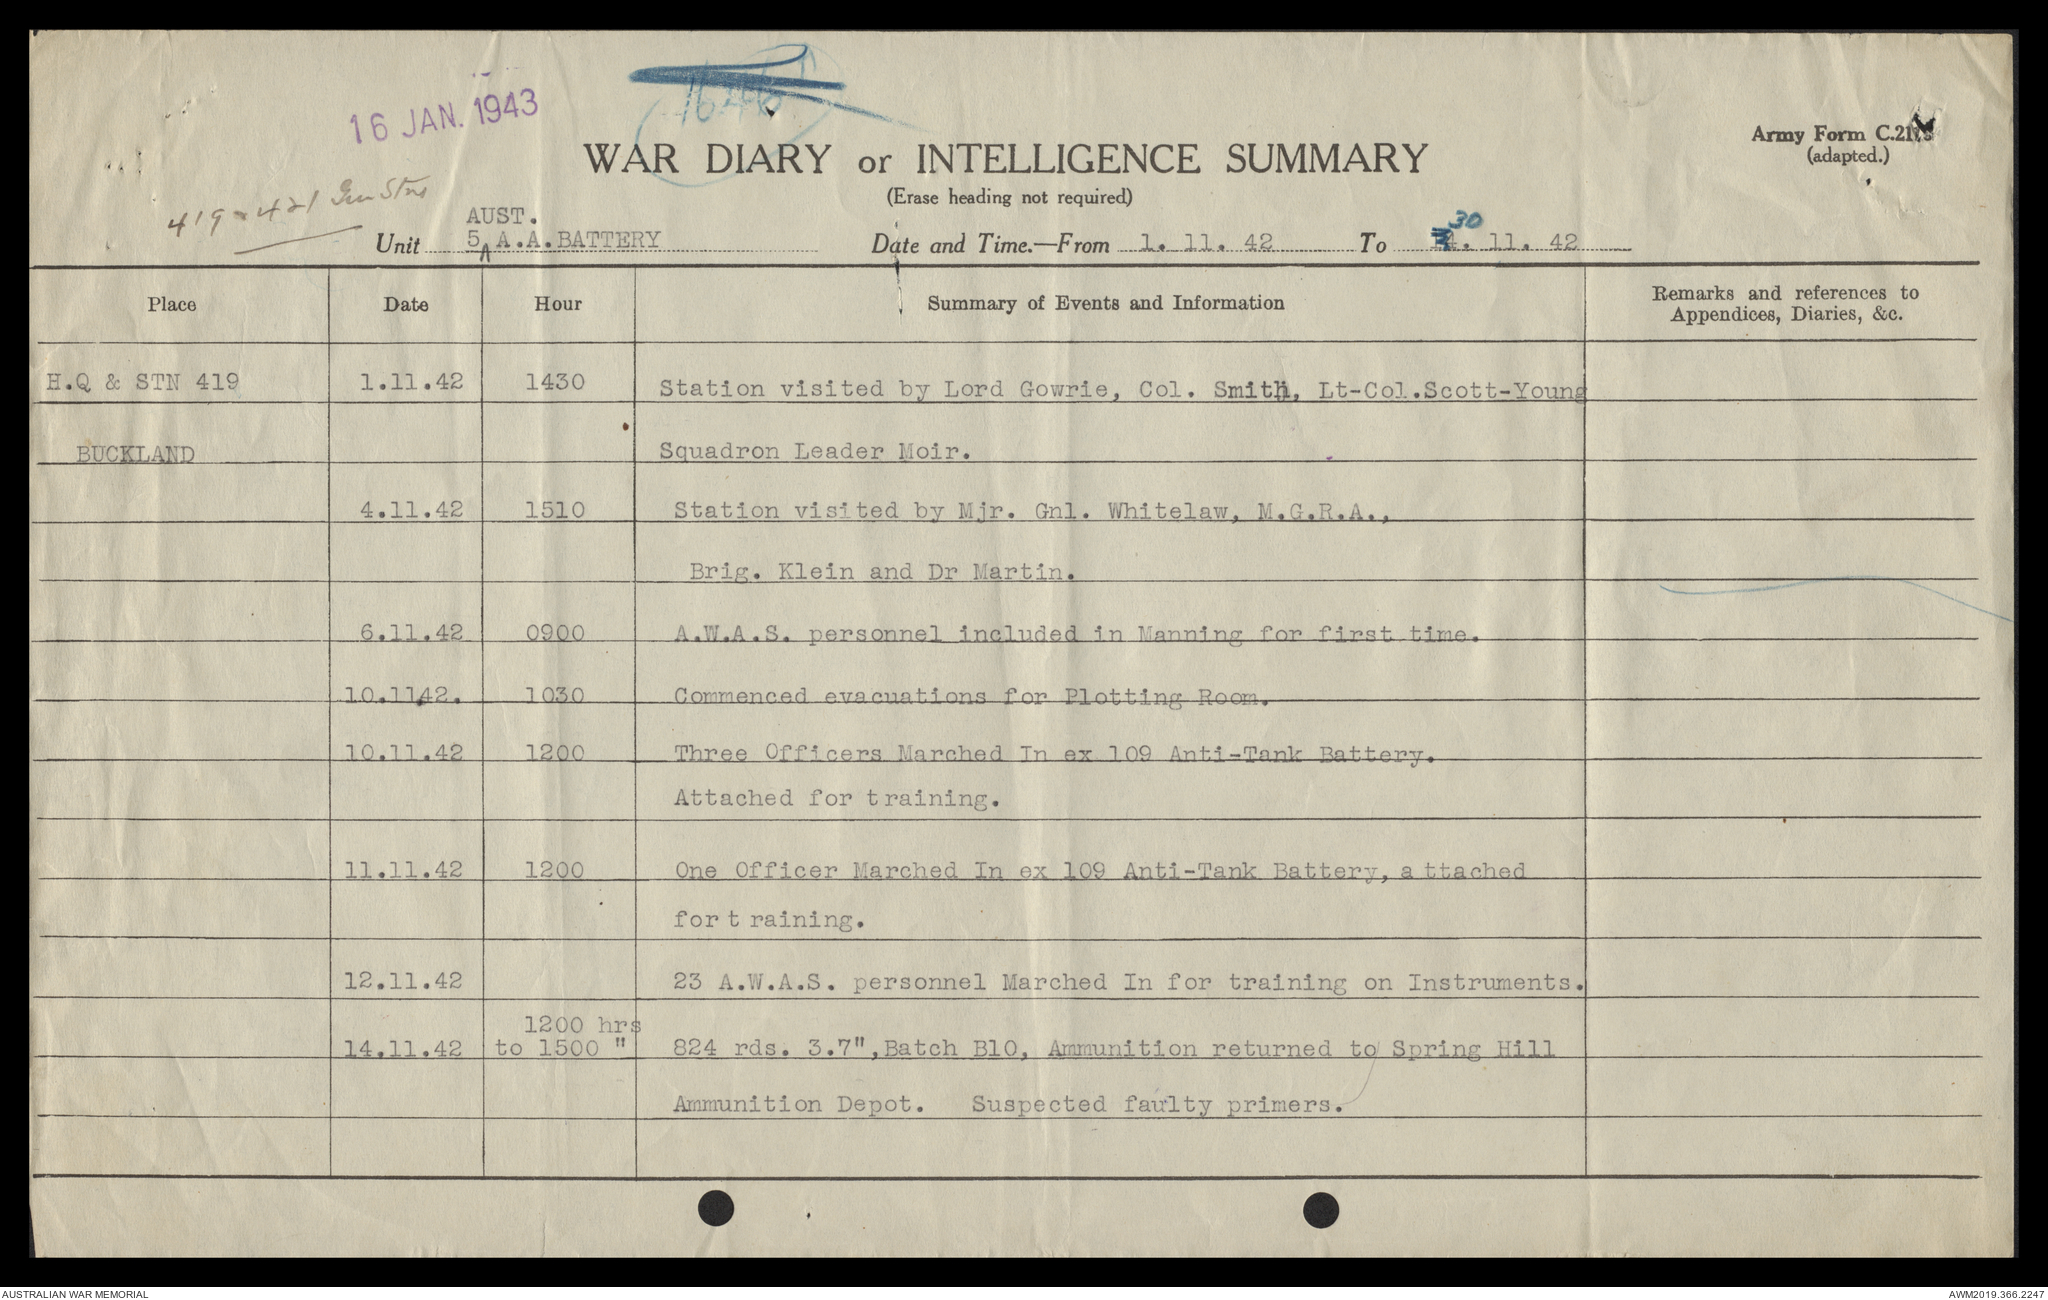 16 JAN. 1943
1646
Army Form C.2118
(adapted.)
WAR DIARY or INTELLIGENCE SUMMARY
(Erase heading not required)
419-421 Gun Stns
AUST.
Unit 5 A.A.BATTERY Date and Time.—From 1. 11. 42 To 30. 11. 42
Place Date Hour Summary of Events and Information Remarks and references to Appendices, Diaries, &c.
H.Q & STN 419 1.11.42 1430 Station visited by Lord Gowrie, Col. Smith, Lt-Col.Scott-Young
BUCKLAND Squadron Leader Moir.
4.11.42 1510 Station visited by Mjr. Gnl. Whitelaw, M.G.R.A.,
Brig. Klein and Dr Martin.
6.11.42 0900 A.W.A.S. personnel included in Manning for first time.
10.11.42. 1030 Commenced evacuations for Plotting Room.
10.11.42 1200 Three Officers Marched In ex 109 Anti-Tank Battery.
Attached for training.
11.11.42 1200 One Officer Marched In ex 109 Anti-Tank Battery, a ttached
for t raining.
12.11.42 23 A.W.A.S. personnel Marched In for training on Instruments.
1200 hrs
14.11.42 to 1500 " 824 rds. 3.7", Batch B10, Ammunition returned to Spring Hill
Ammunition Depot. Suspected faulty primers.
AUSTRALIAN WAR MEMORIAL AWM2019.366.2247